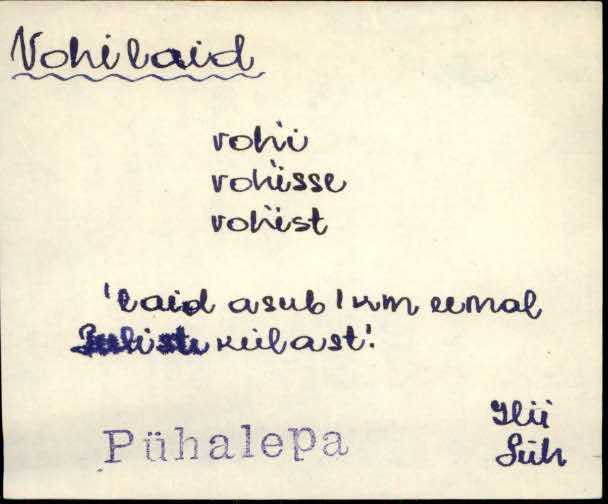 Vohilaid
voh'i
voh'isse
voh'ist
'laid asub 1 km eemal
külast'.
Pühalepa